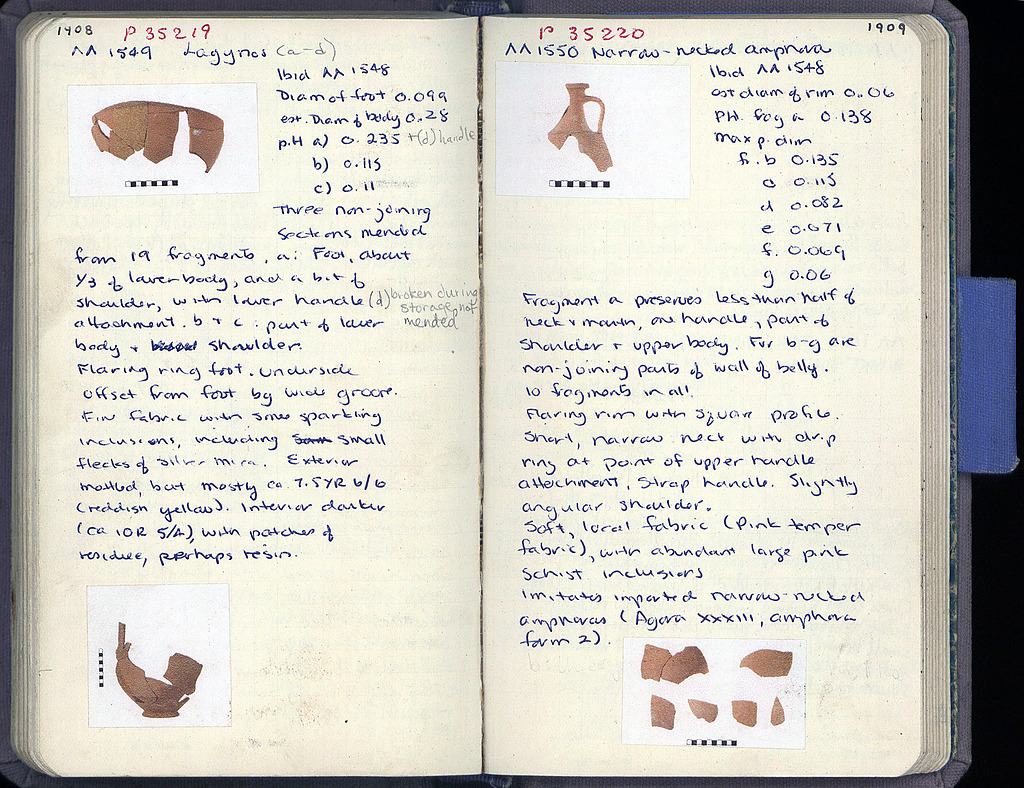 1908
P 35219
ΛΛ 1549 Lagynos (a-d)
Ibid ΛΛ 1548
Diam of foot 0.099
est. Diam of body 0.28
p.H a) 0.235 +(d) handle
b) 0.115
c) 0.11
Three non-joining
sections mended
from 19 fragments, a: Foot, about
1/3 of lower body, and a bit of
shoulder, with lower handle (d) broken during
storage, not
attachment. b + c: part of lower mended
body + shoulder.
Flaring ring foot. Underside
offset from foot by wide groove.
Fin fabric with some sparkling
inclusions, including small
flecks of silver mica. Exterior
mottled, but mostly ca 7.5YR 6/6
(reddish yellow). Interior darker
(ca 10R 5/4), with patches of
residue, perhaps resin.
1909
P 35220
ΛΛ 1550 Narrow-necked amphora
Ibid ΛΛ 1548
est diam of rim 0.06
PH. frag a 0.138
max p. dim
fr. b 0.135
c 0.115
d 0.082
e 0.071
f. 0.069
g 0.06
Fragment a preserves less than half of
neck + mouth, one handle, part of
shoulder + upper body. Frr b-g are
non-joining parts of wall of belly.
10 fragments in all.
Flaring rim with square profile.
Short, narrow neck with drip
ring at point of upper handle
attachment, strap handle. Slightly
angular shoulder.
Soft, local fabric (Pink temper
fabric), with abundant large pink
schist inclusions
Imitates imported narrow-necked
amphoras (Agora XXXIII, amphora
form 2).